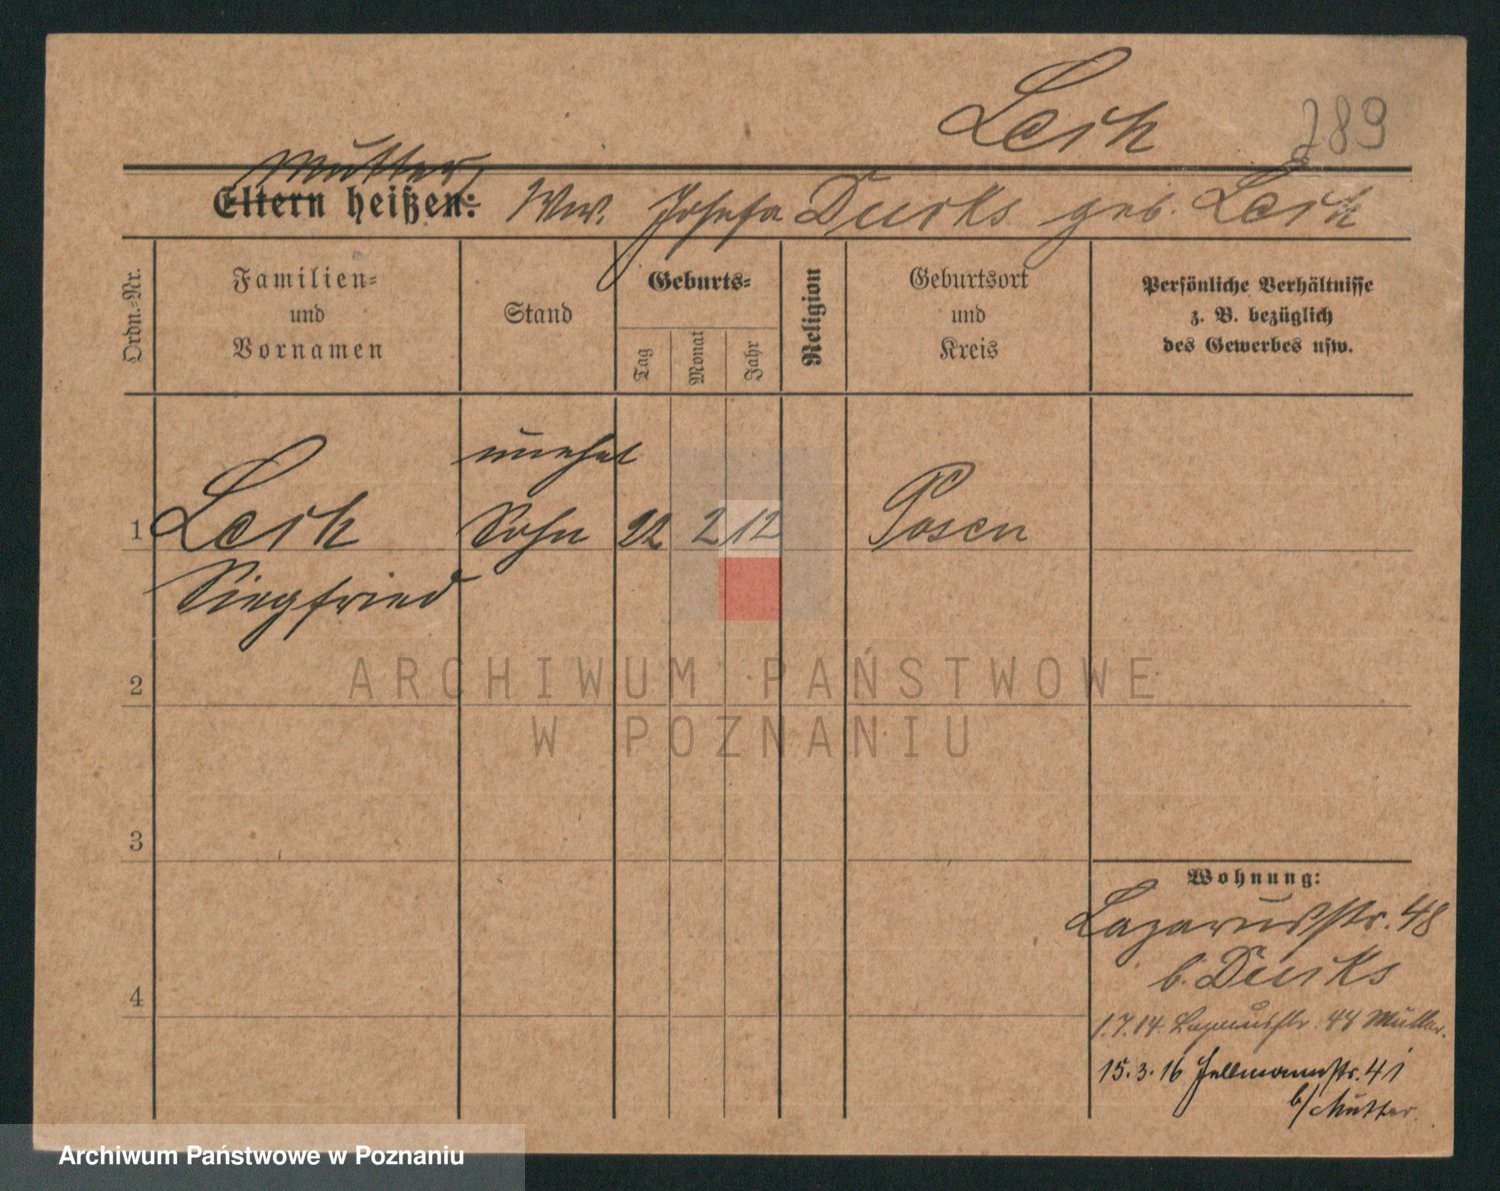 Lesik
289
Mutter
Eltern heißen: Ww. Josefa Durks geb. Lesik
Ordn.=Nr.
Familien=
und
Vornamen
Stand
Geburts=
Tag
Monat
Jahr
Religion
Geburtsort
und
Kreis
Persönliche Verhältnisse
z. B. bezüglich
des Gewerbes usw.
unehel
1 Lesik Sohn 22 2 12 Posen
Siegfried
ARCHIWUM PAŃSTWOWE
W POZNANIU
2
3
4
Wohnung:
Lazarusstr. 48
b. Durks
1.7.14. Lazarusstr. 44 Mutter.
15.3.16 41
b/Mutter.
Archiwum Państwowe w Poznaniu